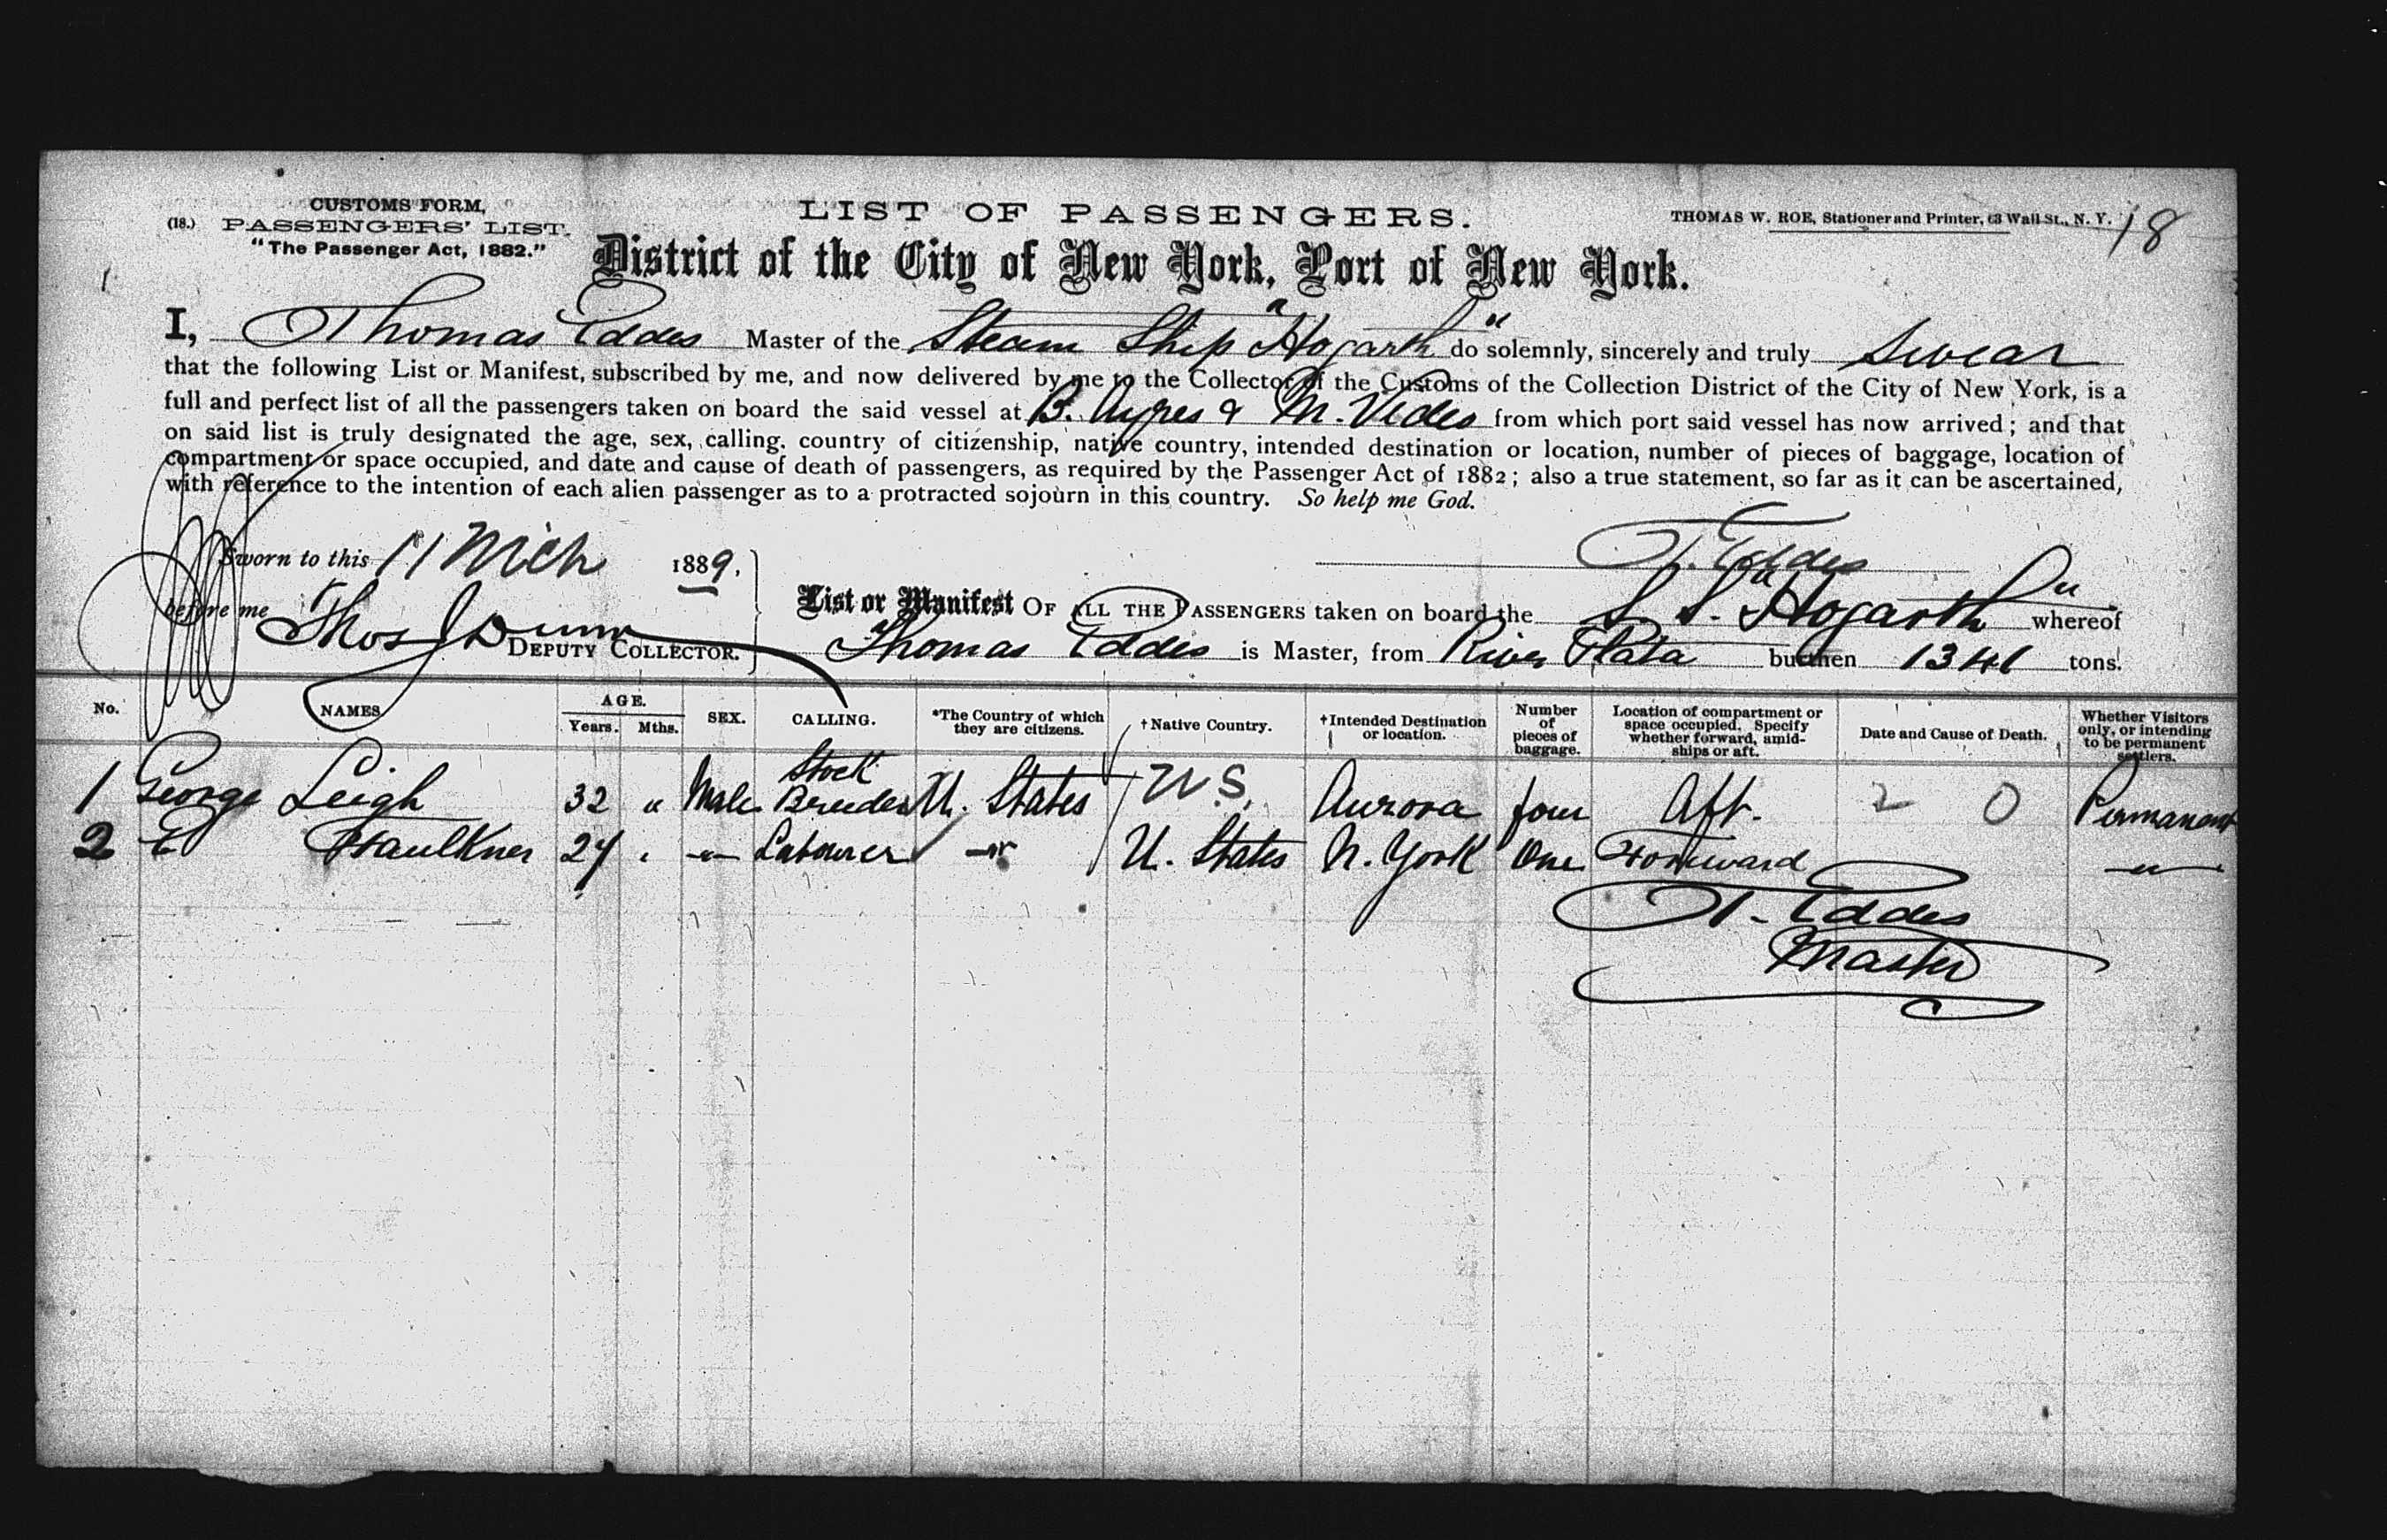 CUSTOMS FORM,
(18.) PASSENGERS' LIST.
"The Passenger Act, 1882."
LIST OF PASSENGERS.
THOMAS W. ROE, Stationer and Printer, 63 Wall St., N. Y.
18
District of the City of New York, Port of New York.
I, Thomas Eddes Master of the Steam Ship "Hogarth" do solemnly, sincerely and truly Swear
that the following List or Manifest, subscribed by me, and now delivered by me to the Collector of the Customs of the Collection District of the City of New York, is a
full and perfect list of all the passengers taken on board the said vessel at B. Ayres & M. Video from which port said vessel has now arrived; and that
on said list is truly designated the age, sex, calling, country of citizenship, native country, intended destination or location, number of pieces of baggage, location of
compartment or space occupied, and date and cause of death of passengers, as required by the Passenger Act of 1882; also a true statement, so far as it can be ascertained,
with reference to the intention of each alien passenger as to a protracted sojourn in this country. So help me God.
Sworn to this 11 Mch 1889,
T. Eddes
before me Thos J Dunn
DEPUTY COLLECTOR.
List or Manifest OF ALL THE PASSENGERS taken on board the S. S. "Hogarth" whereof
Thomas Eddes is Master, from River Plata burthen 1341 tons.
No. NAMES AGE. Years. Mths. SEX. CALLING. *The Country of which they are citizens. †Native Country. †Intended Destination or location. Number of pieces of baggage. Location of compartment or space occupied. Specify whether forward, amidships or aft. Date and Cause of Death. Whether Visitors only, or intending to be permanent settlers.
1 George Leigh 32 " Male Stock Breeder U. States U.S. Aurora four Aft. 2 0 Permanent
2 E Faulkner 24 " -"- Labourer -"- U. States N. York One Forward -"-
T. Eddes
Master